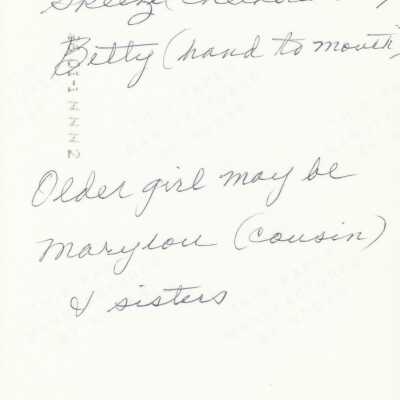 Betty (hand to mouth)
Older girl may be
Marylou (cousin)
& sisters